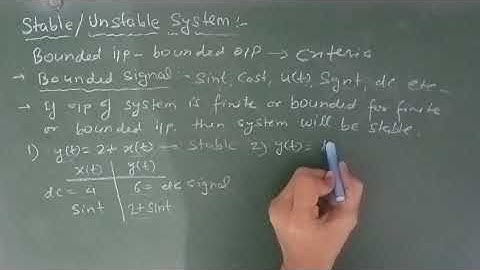 Stable/Unstable System:-
Bounded i/p - bounded o/p → Criteria
→ Bounded Signal - Sint, Cost, u(t), Sgnt, dc etc-
→ If o/p of system is finite or bounded for finite
or bounded i/p. then system will be stable.
1) y(t) = 2+ x(t) → Stable 2) y(t) =
x(t) y(t)
dc = 4 6 = dc signal
Sint 2+Sint